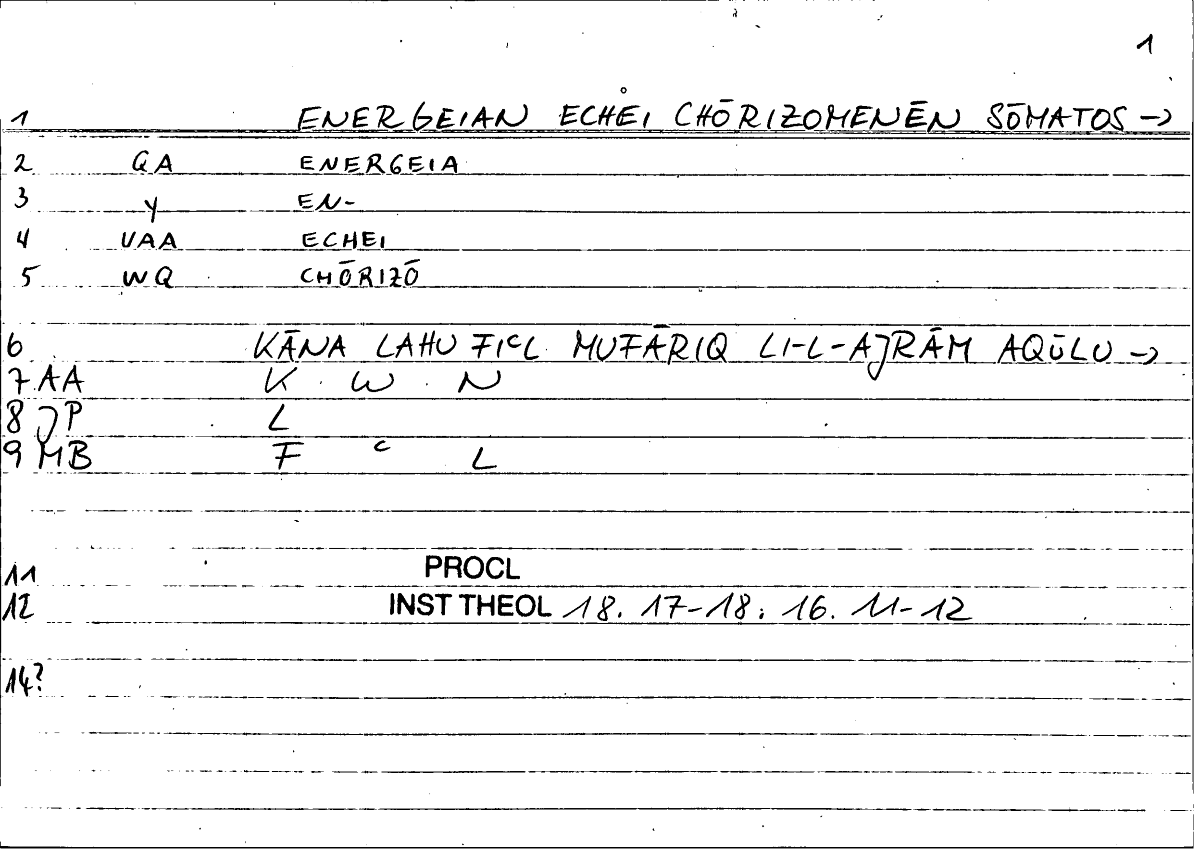 1
1 ENERGEIAN ECHEI CHŌRIZOMENĒN SŌMATOS →
2 GA ENERGEIA
3 Y EN-
4 VAA ECHEI
5 WQ CHŌRIZŌ
6 KĀNA LAHU FIᶜL MUFĀRIQ LI-L-AJRĀM AQŪLU →
7 AA K W N
8 JP L
9 MB F ᶜ L
11 PROCL
12 INST THEOL 18. 17-18: 16. 11-12
14?